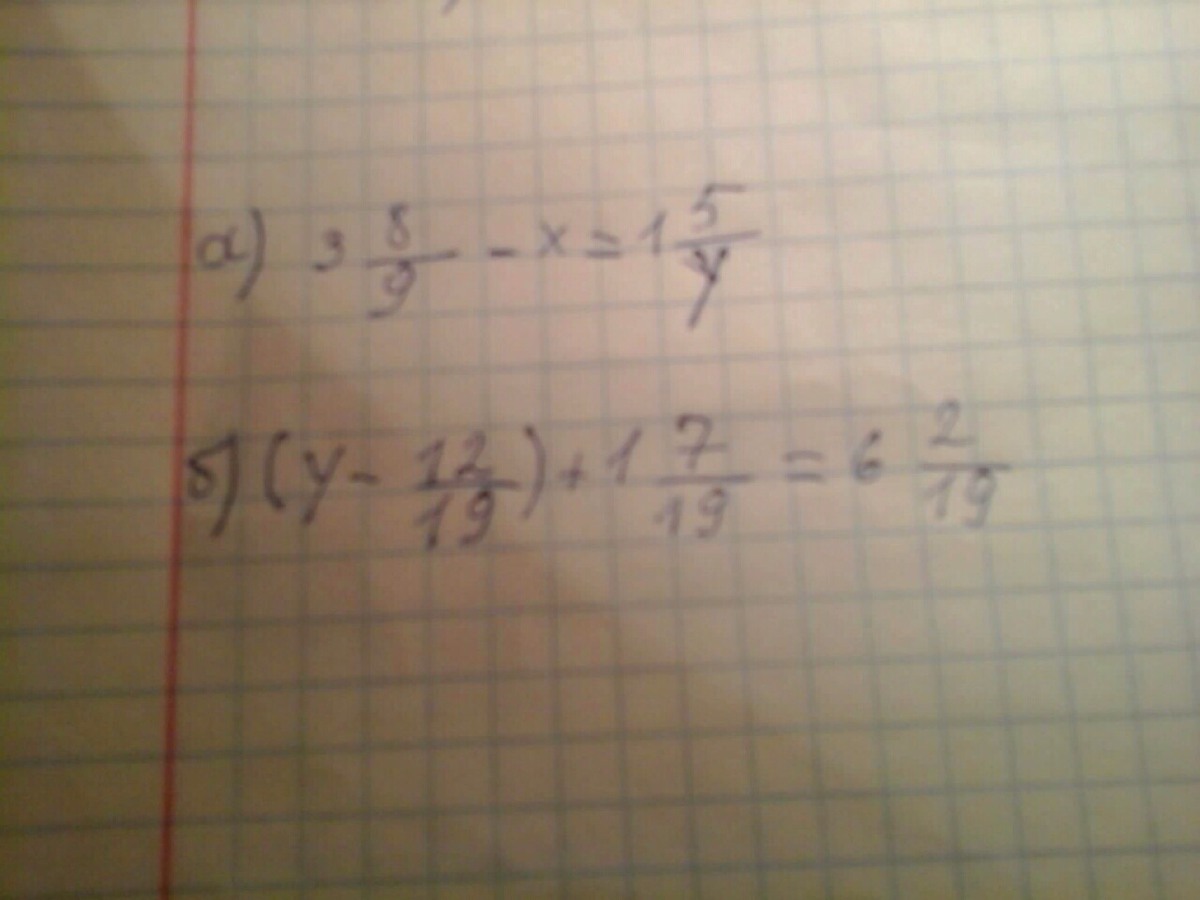 а) 3 8/9 - x = 1 5/y
б) (y - 12/19) + 1 7/19 = 6 2/19